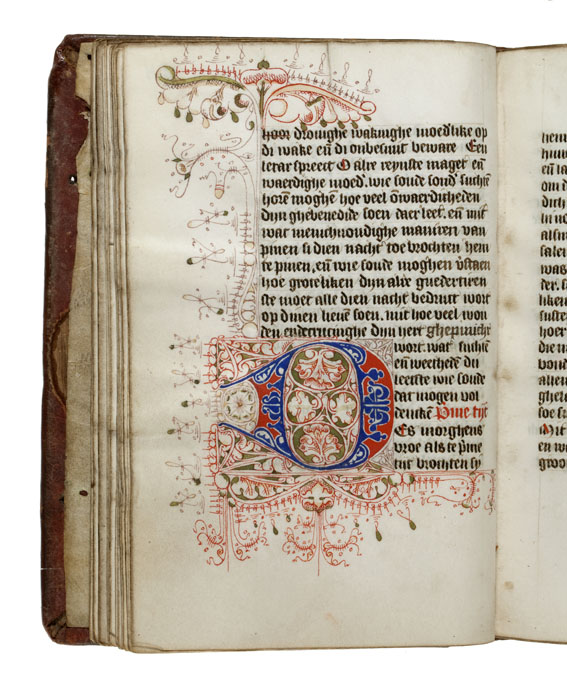 hoor drouighe wakinghe moedlike op
di wake eñ di onbesmit beware Een
lerar spreect O alre reynste maget eñ
waerdighe moed. wie soude sond' suchtē
horē moghē hoe veel ōwaerdicheden
dijn ghebenedide soen daer leet. eñ mit
wat menichvoudighe manirē van
pinen si dien nacht toe brochten hem
te pinen, eñ wie soude moghen v'staen
hoe groteliken dijn alre guedertiren
ste moet alle dien nacht bedruct wort
op dinen lieuē soen. mit hoe veel won
den ender dijn hert ghepinicht
wort. wat suchtē
eñ weeheden du
leetste wie soude
dat mogen vol
dencken Prime tijt
Es morghens
vroe als te prime
tijt brochten sy
hem
eñ la
om d
dich
in no
als
salen
was
der. s
liken
suster
hoer
die n
voud
allen
gheh
soe s
Mit
en w
groo